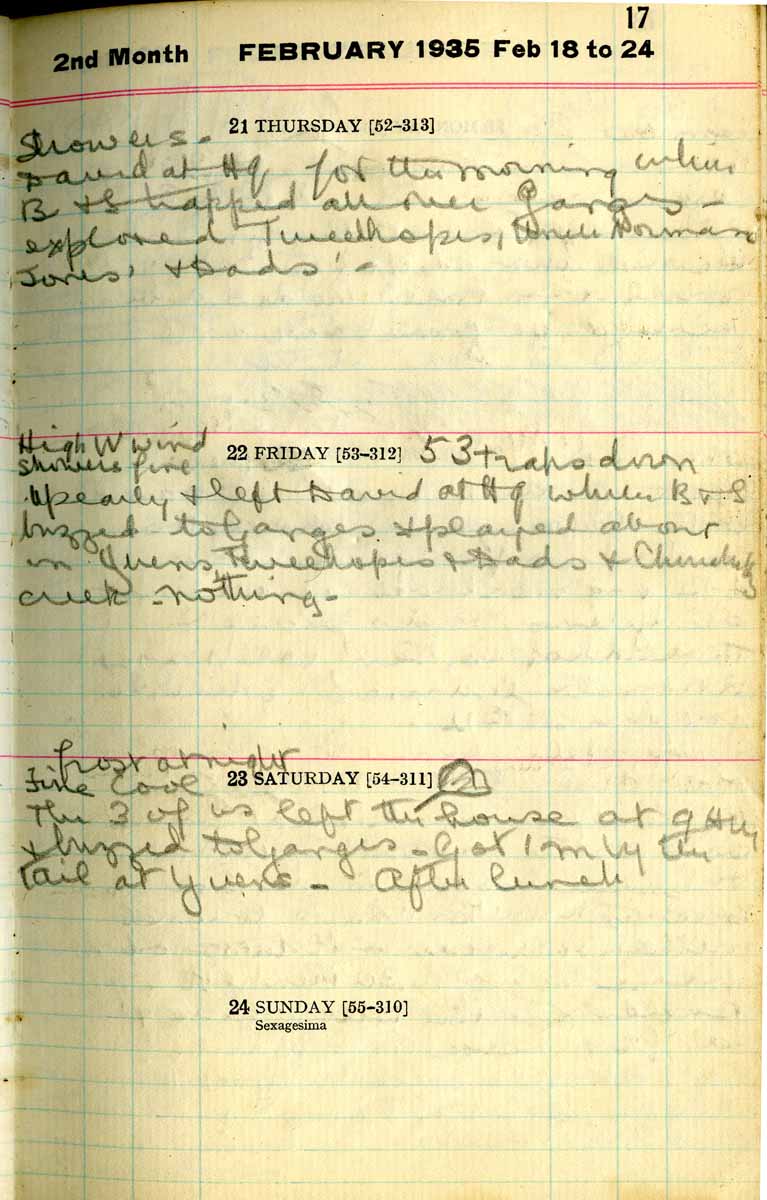 17
2nd Month FEBRUARY 1935 Feb 18 to 24
21 THURSDAY [52–313]
Showers -
David at HQ for the morning while
B & S trapped all over Ganges -
explored Tweelhopes, Uncle Norman
Jones' & Dads' -
High W wind
showers fine
22 FRIDAY [53–312] 53 traps down
Up early & left David at HQ while B & S
buzzed to Ganges & played about
in Yuens, Tweelhopes & Dads &
creek - nothing -
frost at night
Fine Cool
23 SATURDAY [54–311] m
The 3 of us left the house at 9
& buzzed to Ganges - Got 1 m by the
tail at Yuens - After lunch
24 SUNDAY [55–310]
Sexagesima